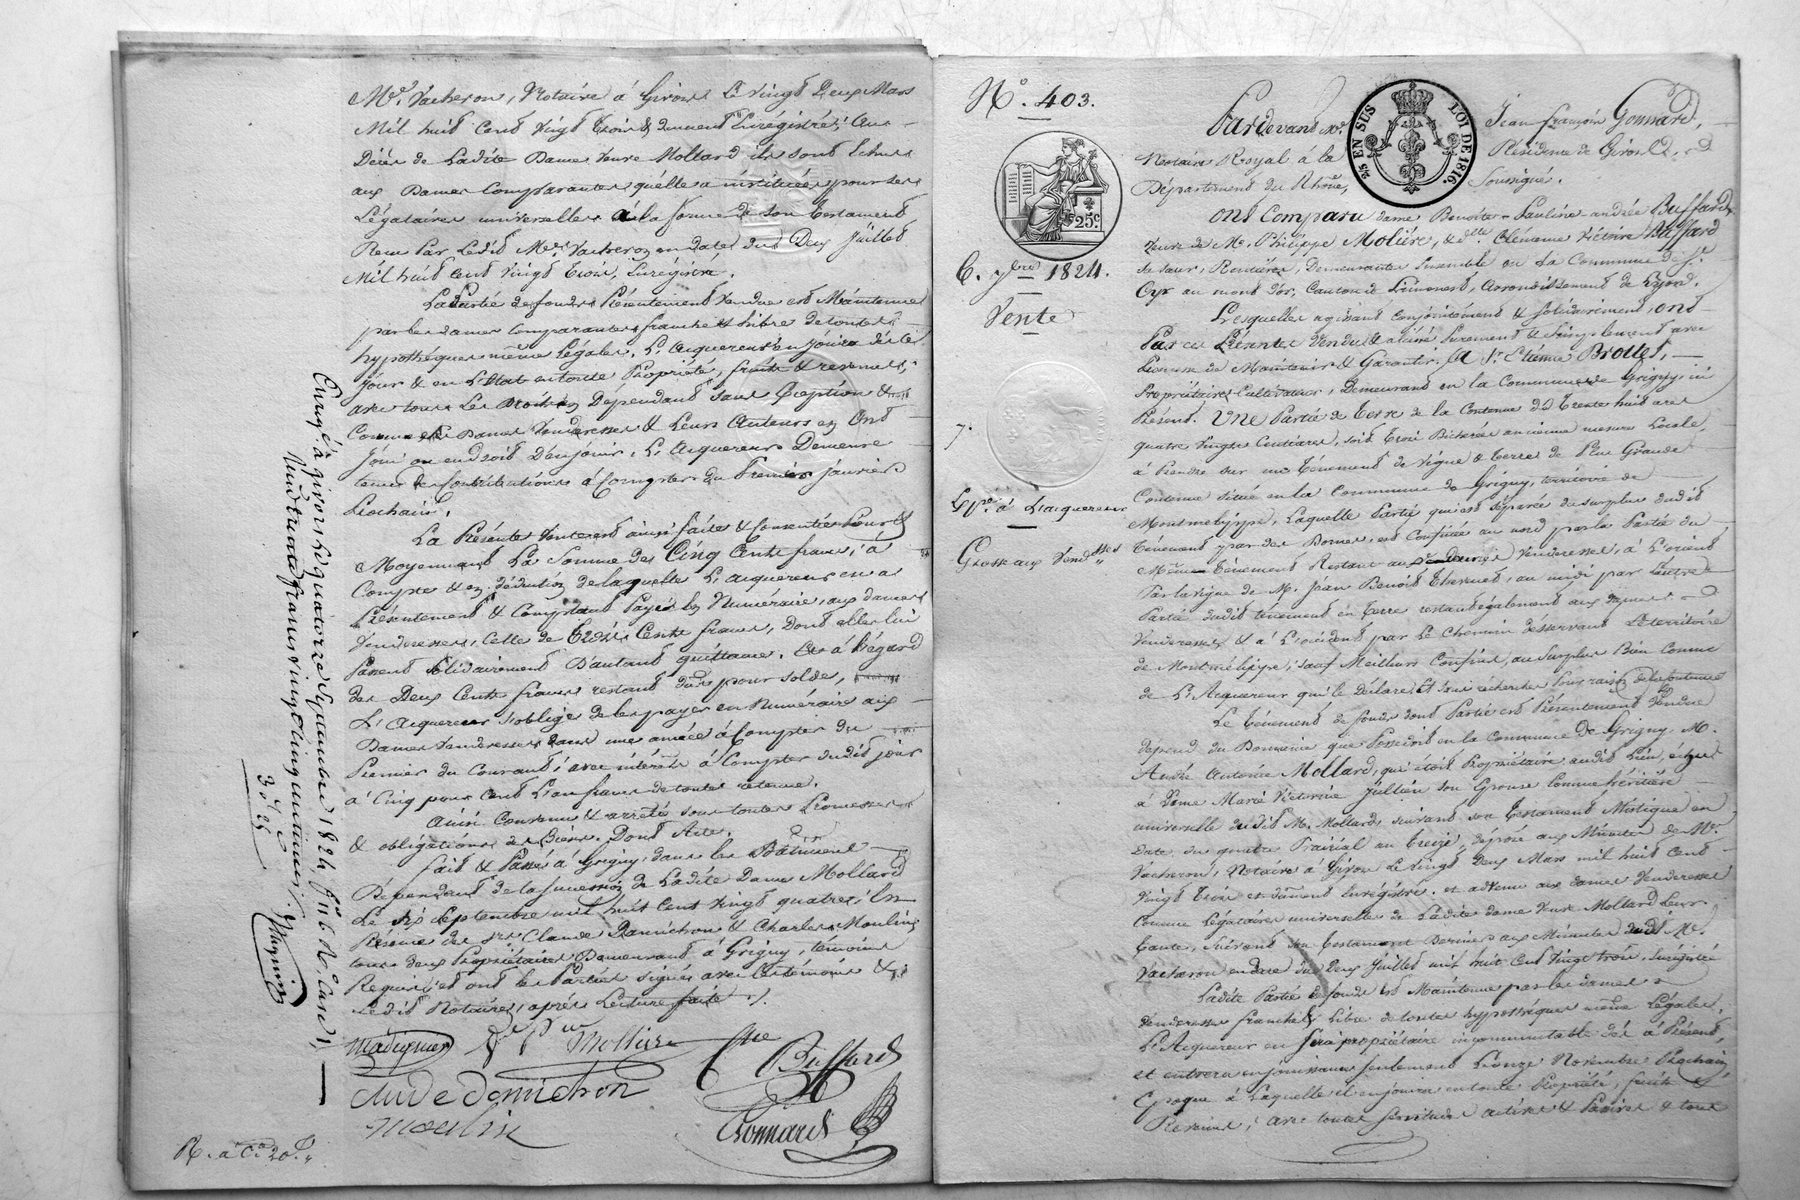 Me. Vacheron, Notaire à Givors Le vingt Deux Mars
Mil huit Cent Vingt Trois & dument Enrégistré; Au
Décès de Ladite Dame Veuve Mollard ils sont Echus
aux Dames Comparantes quélle a instituées pour ses
Légataires universelles à la forme de son testament
Recu Par Ledit Me. Vacheron en date du Deux Juillet
Mil huit Cent Vingt Trois, Enrégistré.
La Partie de fonds Présentement Vendue est Maintenue
par les dames Comparantes franche & libre de toutes
hypothéques même Légales. L'Acquereur en Jouira dès ce
Jour & en L'Etat en toute Propriété, fruits & revenus,
avec tous Les Droits en Dépendant sans Exception &
Comme les Dames Venderesses & Leurs Auteurs en Ont
Joui ou en droit D'enjouir. L'Acquereur Demeure
tenu des Contributions à Compter du Premier Janvier
Prochain.
La Présente Vente est ainsi faite & Consentie Pour &
Moyennant La Somme de Cinq Cents francs, à
Compte & en déduction de laquelle L'acquereur en a
Présentement & Comptant Payé en Numéraire, aux dames
Venderesses, Celle de Trois Cents francs, Dont elles lui
Passent Solidairement D'autant quittance. Et à L'égard
des Deux Cents francs restant dûs pour solde,
L'Acquereur s'oblige de les payer en Numéraire aux
Dames Venderesses dans une année à Compter du
Premier du Courant, avec intérêts à Compter dudit jour
à Cinq pour Cent L'an francs de toute retenue.
Ainsi Convenu & arrêté sous toutes Promesses
& obligations de Biens. Dont Acte.
fait & Passé à Grigny dans les Bâtiments
Dépendant de la Succession de Ladite Dame Mollard
Le Six Septembre mil huit Cent vingt quatre, En
Présence des Srs. Claude Damichon & Charles Moulin
tous deux Propriétaires Demeurant à Grigny, témoins
Requis, et ont les Parties signé avec les témoins &
Ledit Notaire, après Lecture faite ./.
Madignier
Mollière
Buffard
Claude Damichon
Moulin
Gonnard
Enreg. à Givors Le quatorze Septembre 1824, fo. 116 Ro. Case 1,
Vingt cinq centimes.
R. a Ct. 20.
No. 403.
25c.
6. 7bre 1824.
Vente
7.
Expon. à L'acquereur
Grosse aux Venderesses
Pardevant Me. Jean françois Gonnard,
Notaire Royal à la Résidence de Givors,
Département du Rhône, Soussigné.
2/5 EN SUS LOI DE 1816.
Ont Comparu dame Benoite-Pauline-andrée Buffard
Veuve de Mr. Philippe Molière, & dlle. Clémence Victoire Buffard
Sa Sœur, Rentières, Demeurantes Ensemble en La Commune de St.
Cyr au mont d'or, Canton de Limonest, Arrondissement de Lyon.
Lesquelles agissant Conjointement & Solidairement, ont
Par ces Présentes Vendu & aliéné Purement & Simplement avec
Promesse de Maintenir & Garantir, A Sr. Etienne Brottet,
Propriétaire Cultivateur, Demeurant en la Commune de Grigny, ici
Présent. Une Partie de Terre de la Contenue de Trente huit ares
quatre Vingts Centiares, soit trois Bicherées ancienne mesure Locale,
à Prendre sur un Ténement de Vigne & Terres de Plus Grande
Contenue située en la Commune de Grigny, territoire de
Montmelippe, Laquelle Partie qui est séparée du surplus dudit
Ténement par des Bornes, est Confinée au nord par la Partie du
Même Ténement Restant aux dames Venderesses, à L'orient
Par la vigne de M. Jean Benoit Thevenet, au midi par L'autre
Partie dudit tenement en Terre restant également aux dames
Venderesses & à L'occident par Le Chemin désservant Le territoire
de Montmelippe, Sauf Meilleurs Confins, au surplus Bien Connue
de L'Acquereur qui le déclare, Et sans recherche sous raison de la Contenue
Le Ténement de fonds dont Partie est Présentement Vendue
dépend du Domaine que Possédoit en la Commune De Grigny M.
André Antoine Mollard, qui étoit Propriétaire audit Lieu, échue
à Dame Marie Victoire Jullien son Epouse Comme héritière
universelle dudit M. Mollard, suivant son Testament Mistique en
Date du quatre Prairial an treize, déposé aux Minutes de Me.
Vacheron, Notaire à Givors Le Vingt Deux Mars mil huit Cent
Vingt Trois et dument Enrégistré. et advenu aux dames Venderesses
Comme Légataires universelles de Ladite dame Veuve Mollard Leur
tante, Suivant son testament Dernier aux Minutes dudit Me.
Vacheron en date du Deux Juillet mil huit Cent Vingt trois, Enrégistré
Ladite Partie de fonds est Maintenue par les dames
Venderesses franche & Libre de toutes hypothéques même Légales.
L'Acquereur en sera propriétaire incommutable dès à Présent,
et entrera en jouissance seulement L'onze Novembre Prochain
Epoque à Laquelle il en jouira en toute Propriété, fruits &
Revenus, avec toutes servitudes actives & Passives & tous